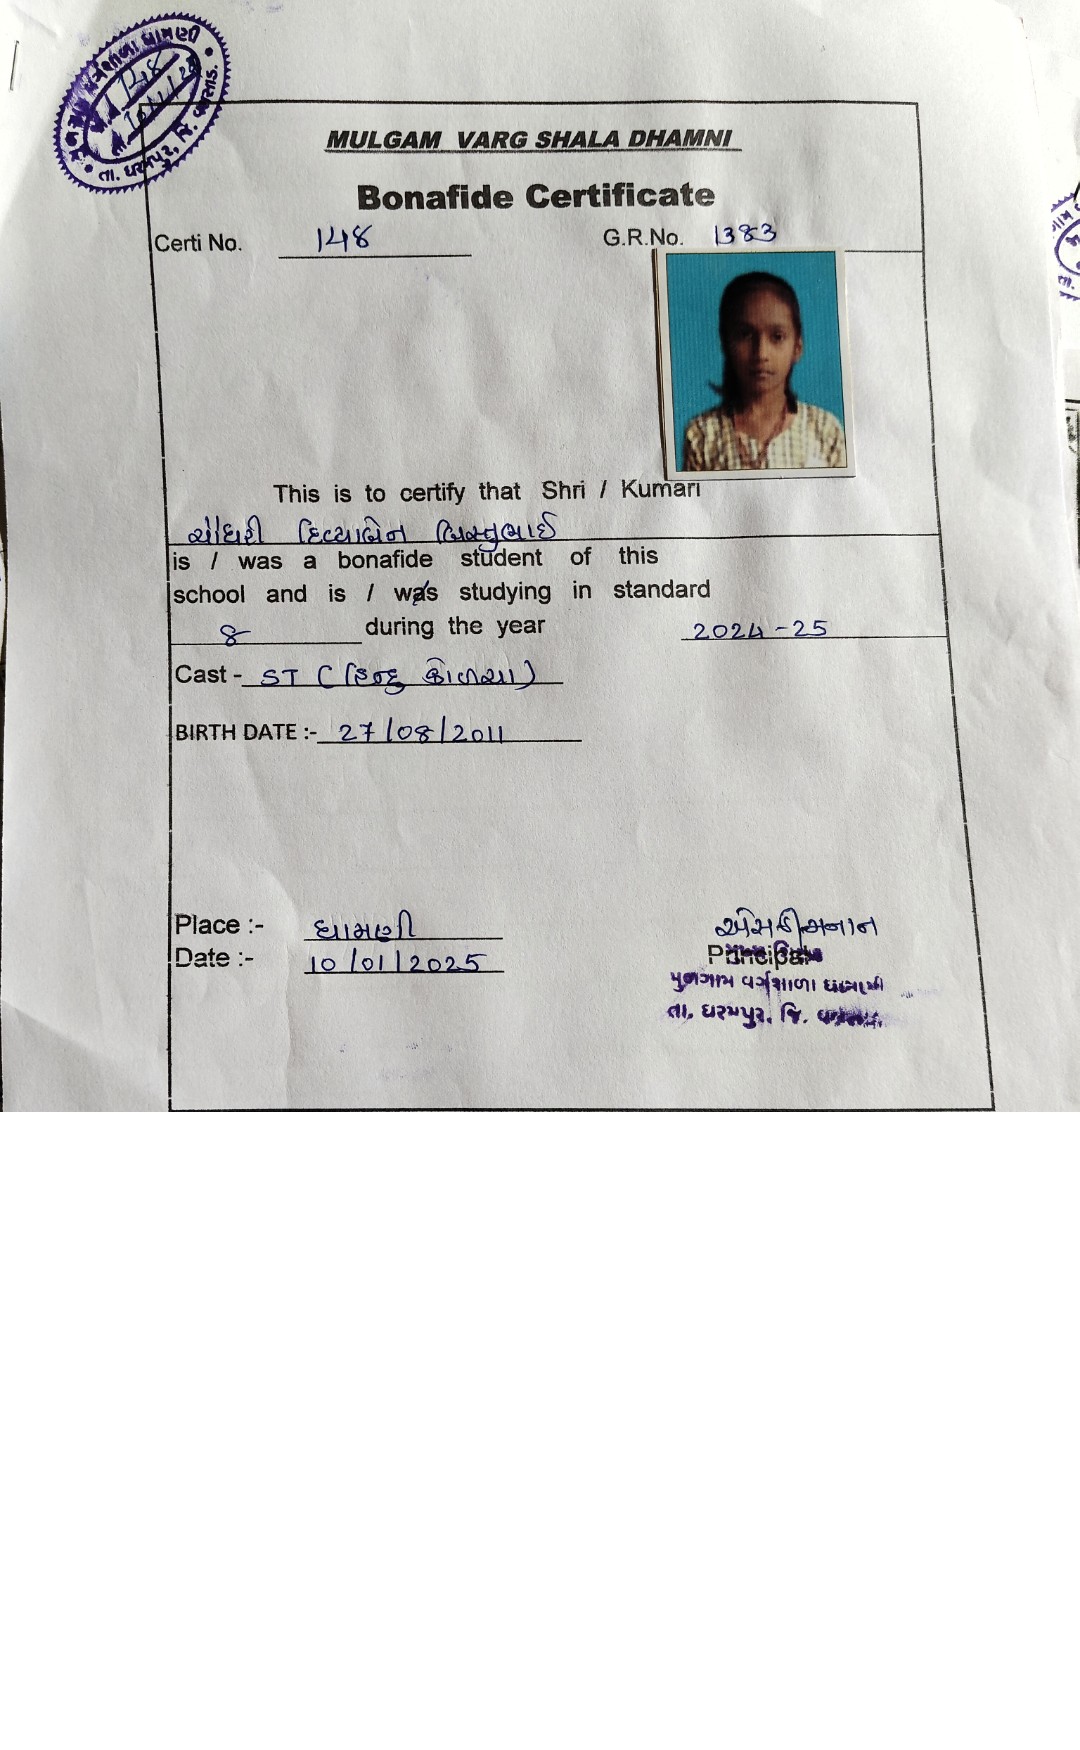 તા. ધરમપુર, જિ. વલસાડ.
MULGAM VARG SHALA DHAMNI
Bonafide Certificate
Certi No. 148 G.R.No. 1383
This is to certify that Shri / Kumari
ચૌધરી દિવ્યાબેન
is / was a bonafide student of this
school and is / was studying in standard
8 during the year 2024-25
Cast - ST (હિન્દુ
BIRTH DATE :- 27/08/2011
Place :- ધામણી
Date :- 10/01/2025
Principal
મુળગામ વર્ગશાળા ધામણી
તા. ધરમપુર. જિ. વલસાડ